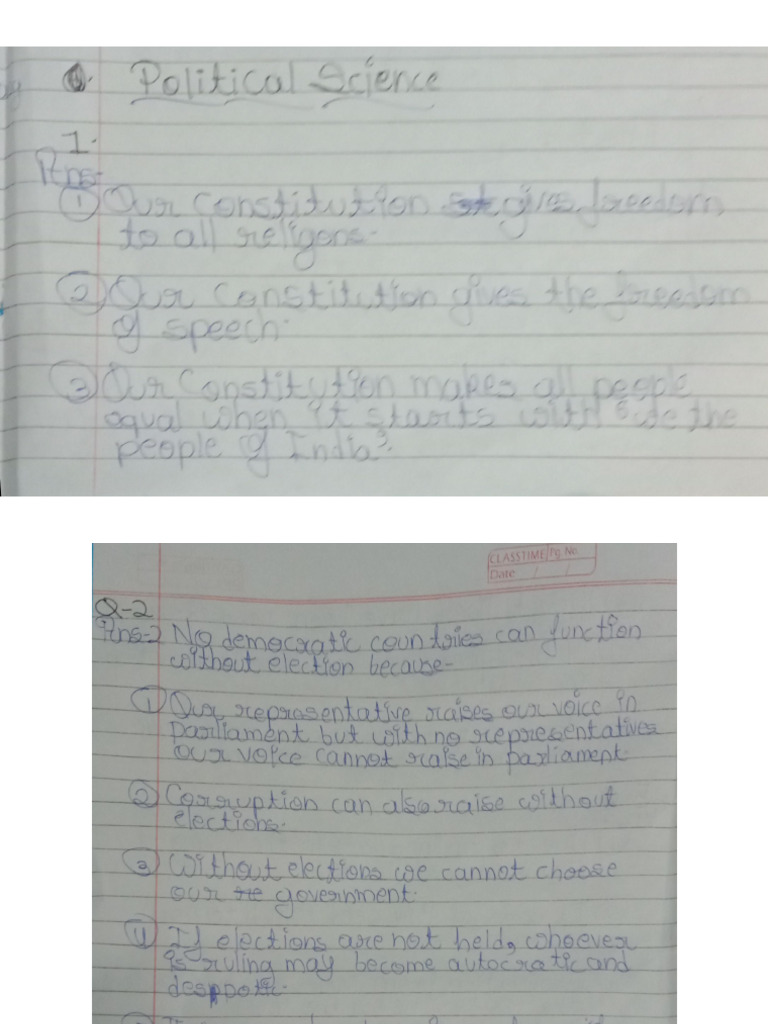 Political Science
1.
Ans-
① Our constitution gives freedom
to all religons.
② Our constitution gives the freedom
of speech.
③ Our Constitution makes all people
equal when it starts with "we the
people of India".
CLASSTIME Pg. No.
Date / /
Q-2
Ans-2 No democratic countries can function
without election because-
① Our representative raises our voice in
parliament but with no representatives
our voice cannot raise in parliament.
② Corruption can also raise without
elections.
③ Without elections we cannot choose
our government.
④ If elections are not held, whoever
is ruling may become autocratic and
despotic.